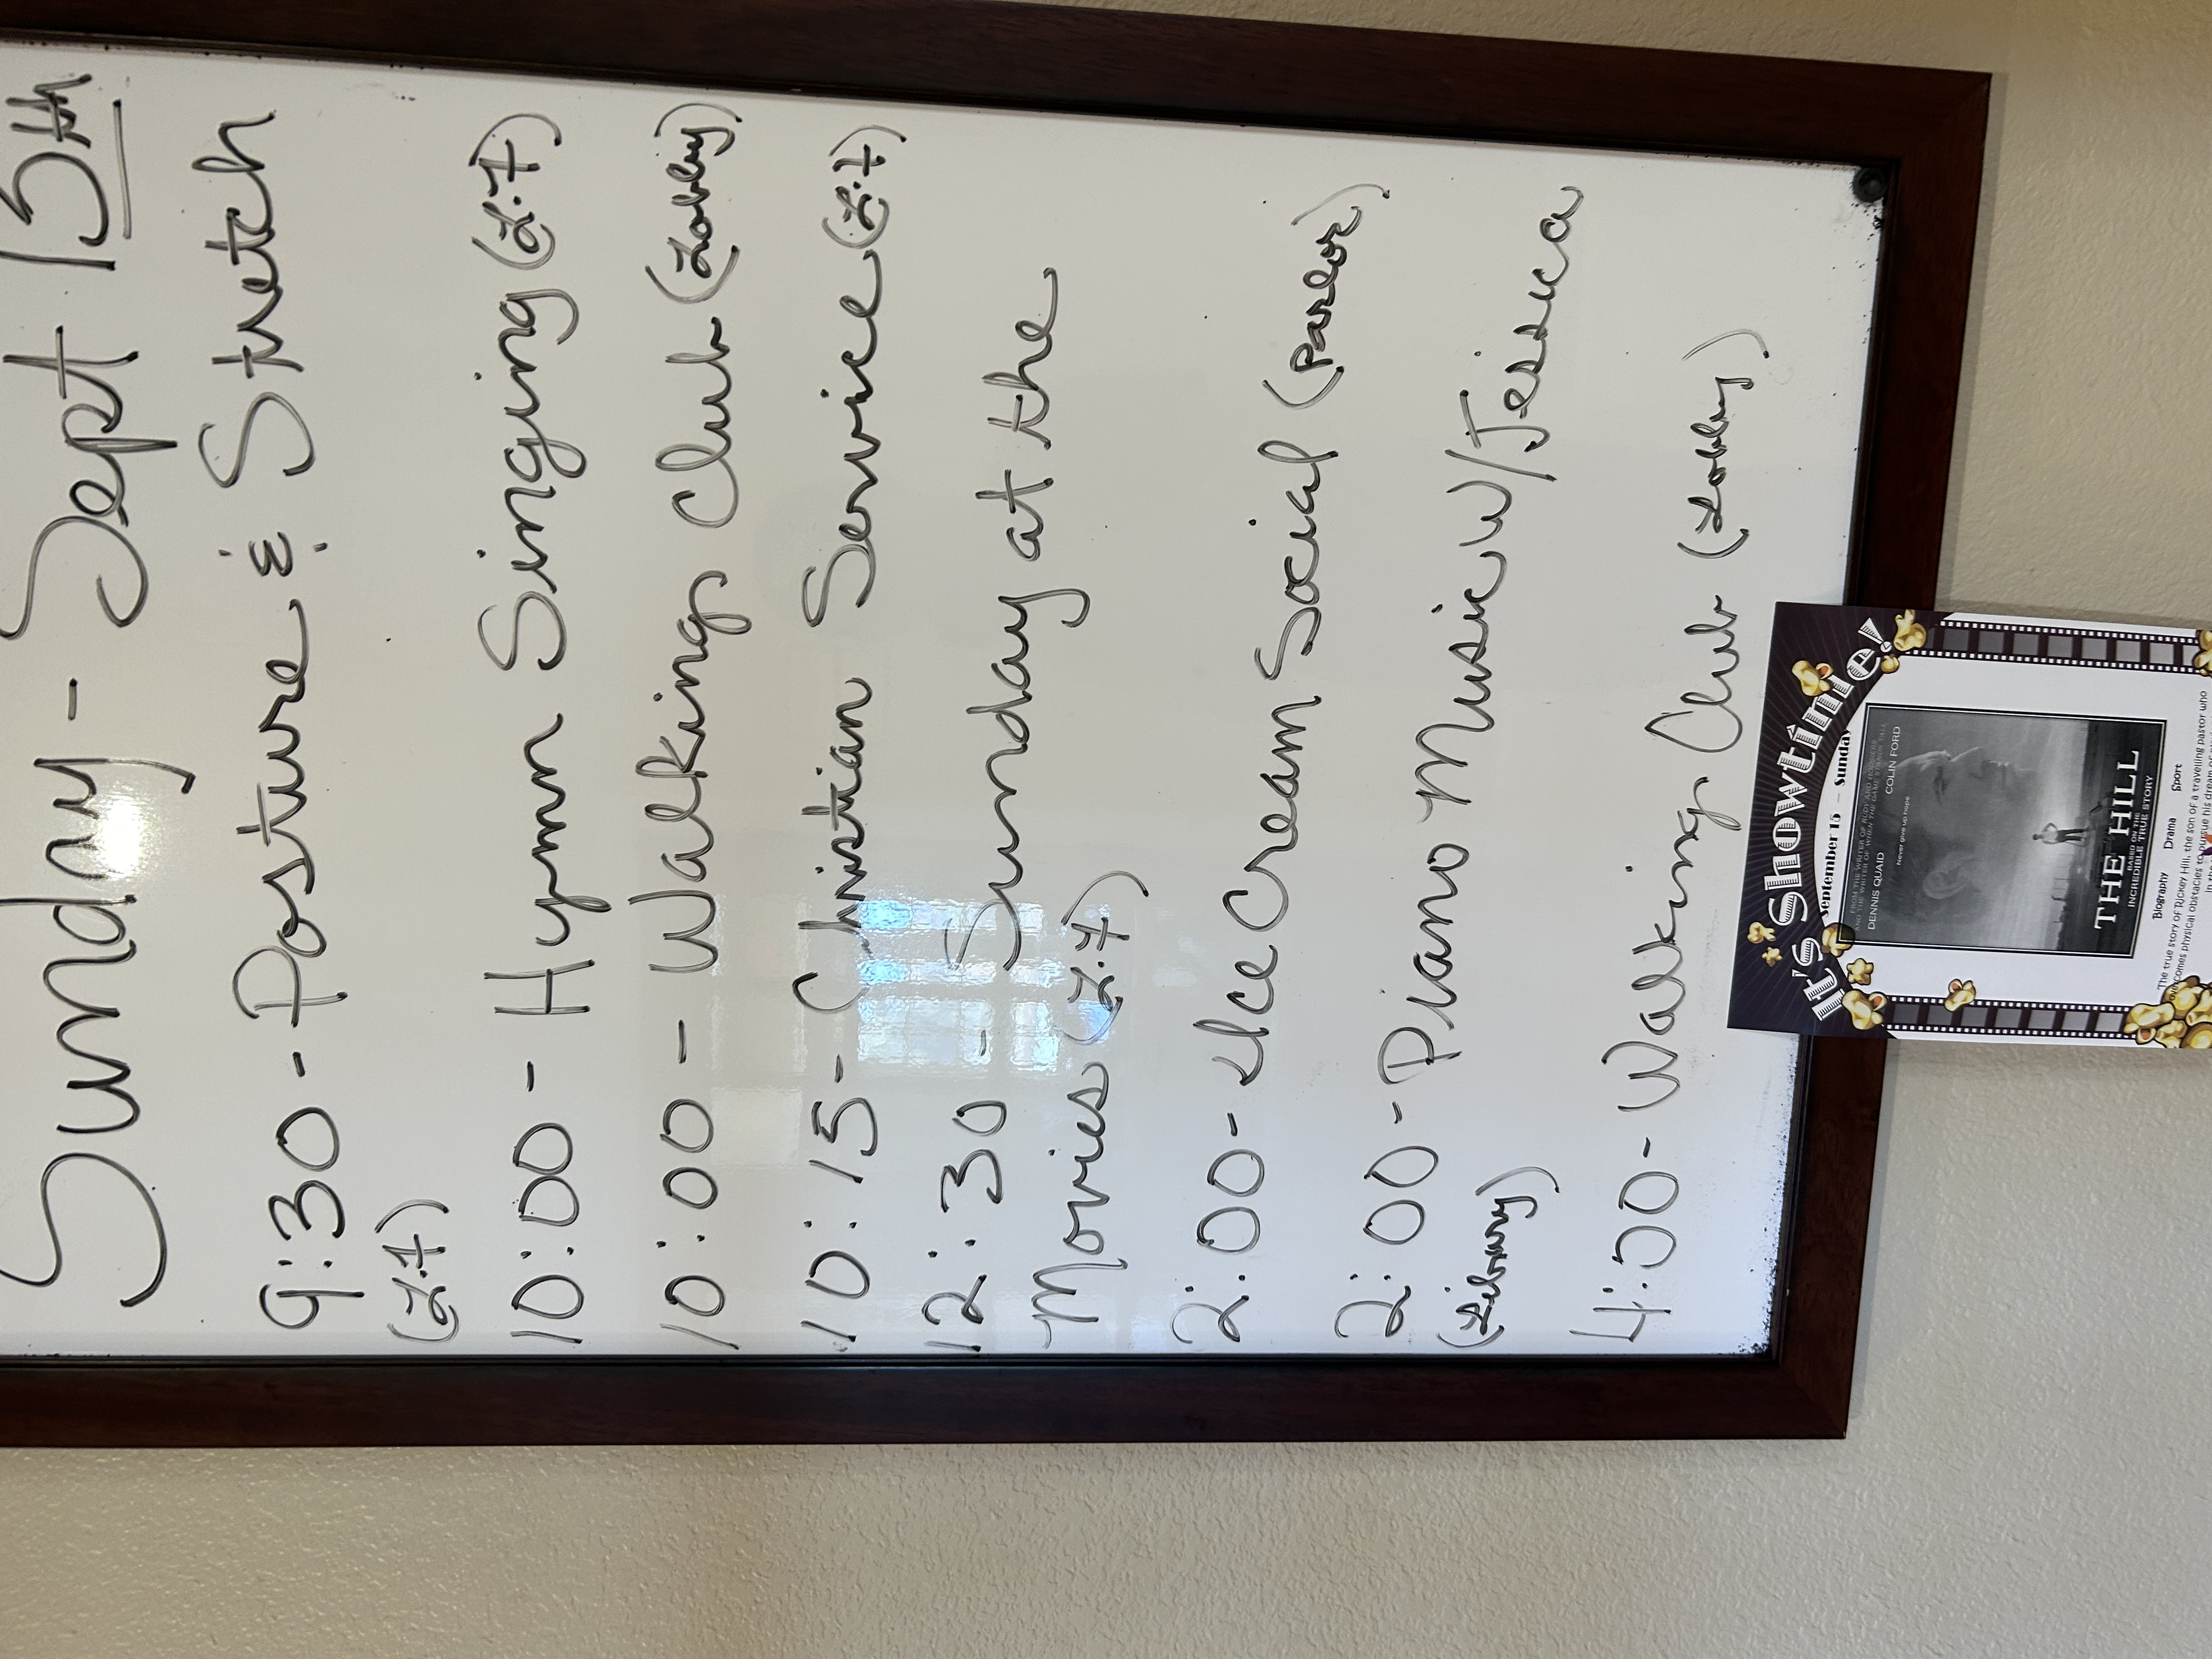 Sunday - Sept 15th
9:30 - Posture & Stretch
(L.T)
10:00 - Hymn Singing (L.T)
10:00 - Walking Club (Lobby)
10:15 - Christian Service (L.T)
12:30 - Sunday at the
Movies (L.T)
2:00 - Ice Cream Social (Parlor)
2:00 - Piano Music W/Jessica
(Library)
4:00 - Walking Club (Lobby)
It's Showtime!
September 15 – Sunday
FROM THE WRITER OF RUDY AND HOOSIERS
AND THE WRITER OF WHEN THE GAME STANDS TALL
DENNIS QUAID COLIN FORD
Never give up hope
THE HILL
BASED ON THE
INCREDIBLE TRUE STORY
Biography Drama Sport
"The true story of Rickey Hill, the son of a travelling pastor who
overcomes physical obstacles to pursue his dream of
in the